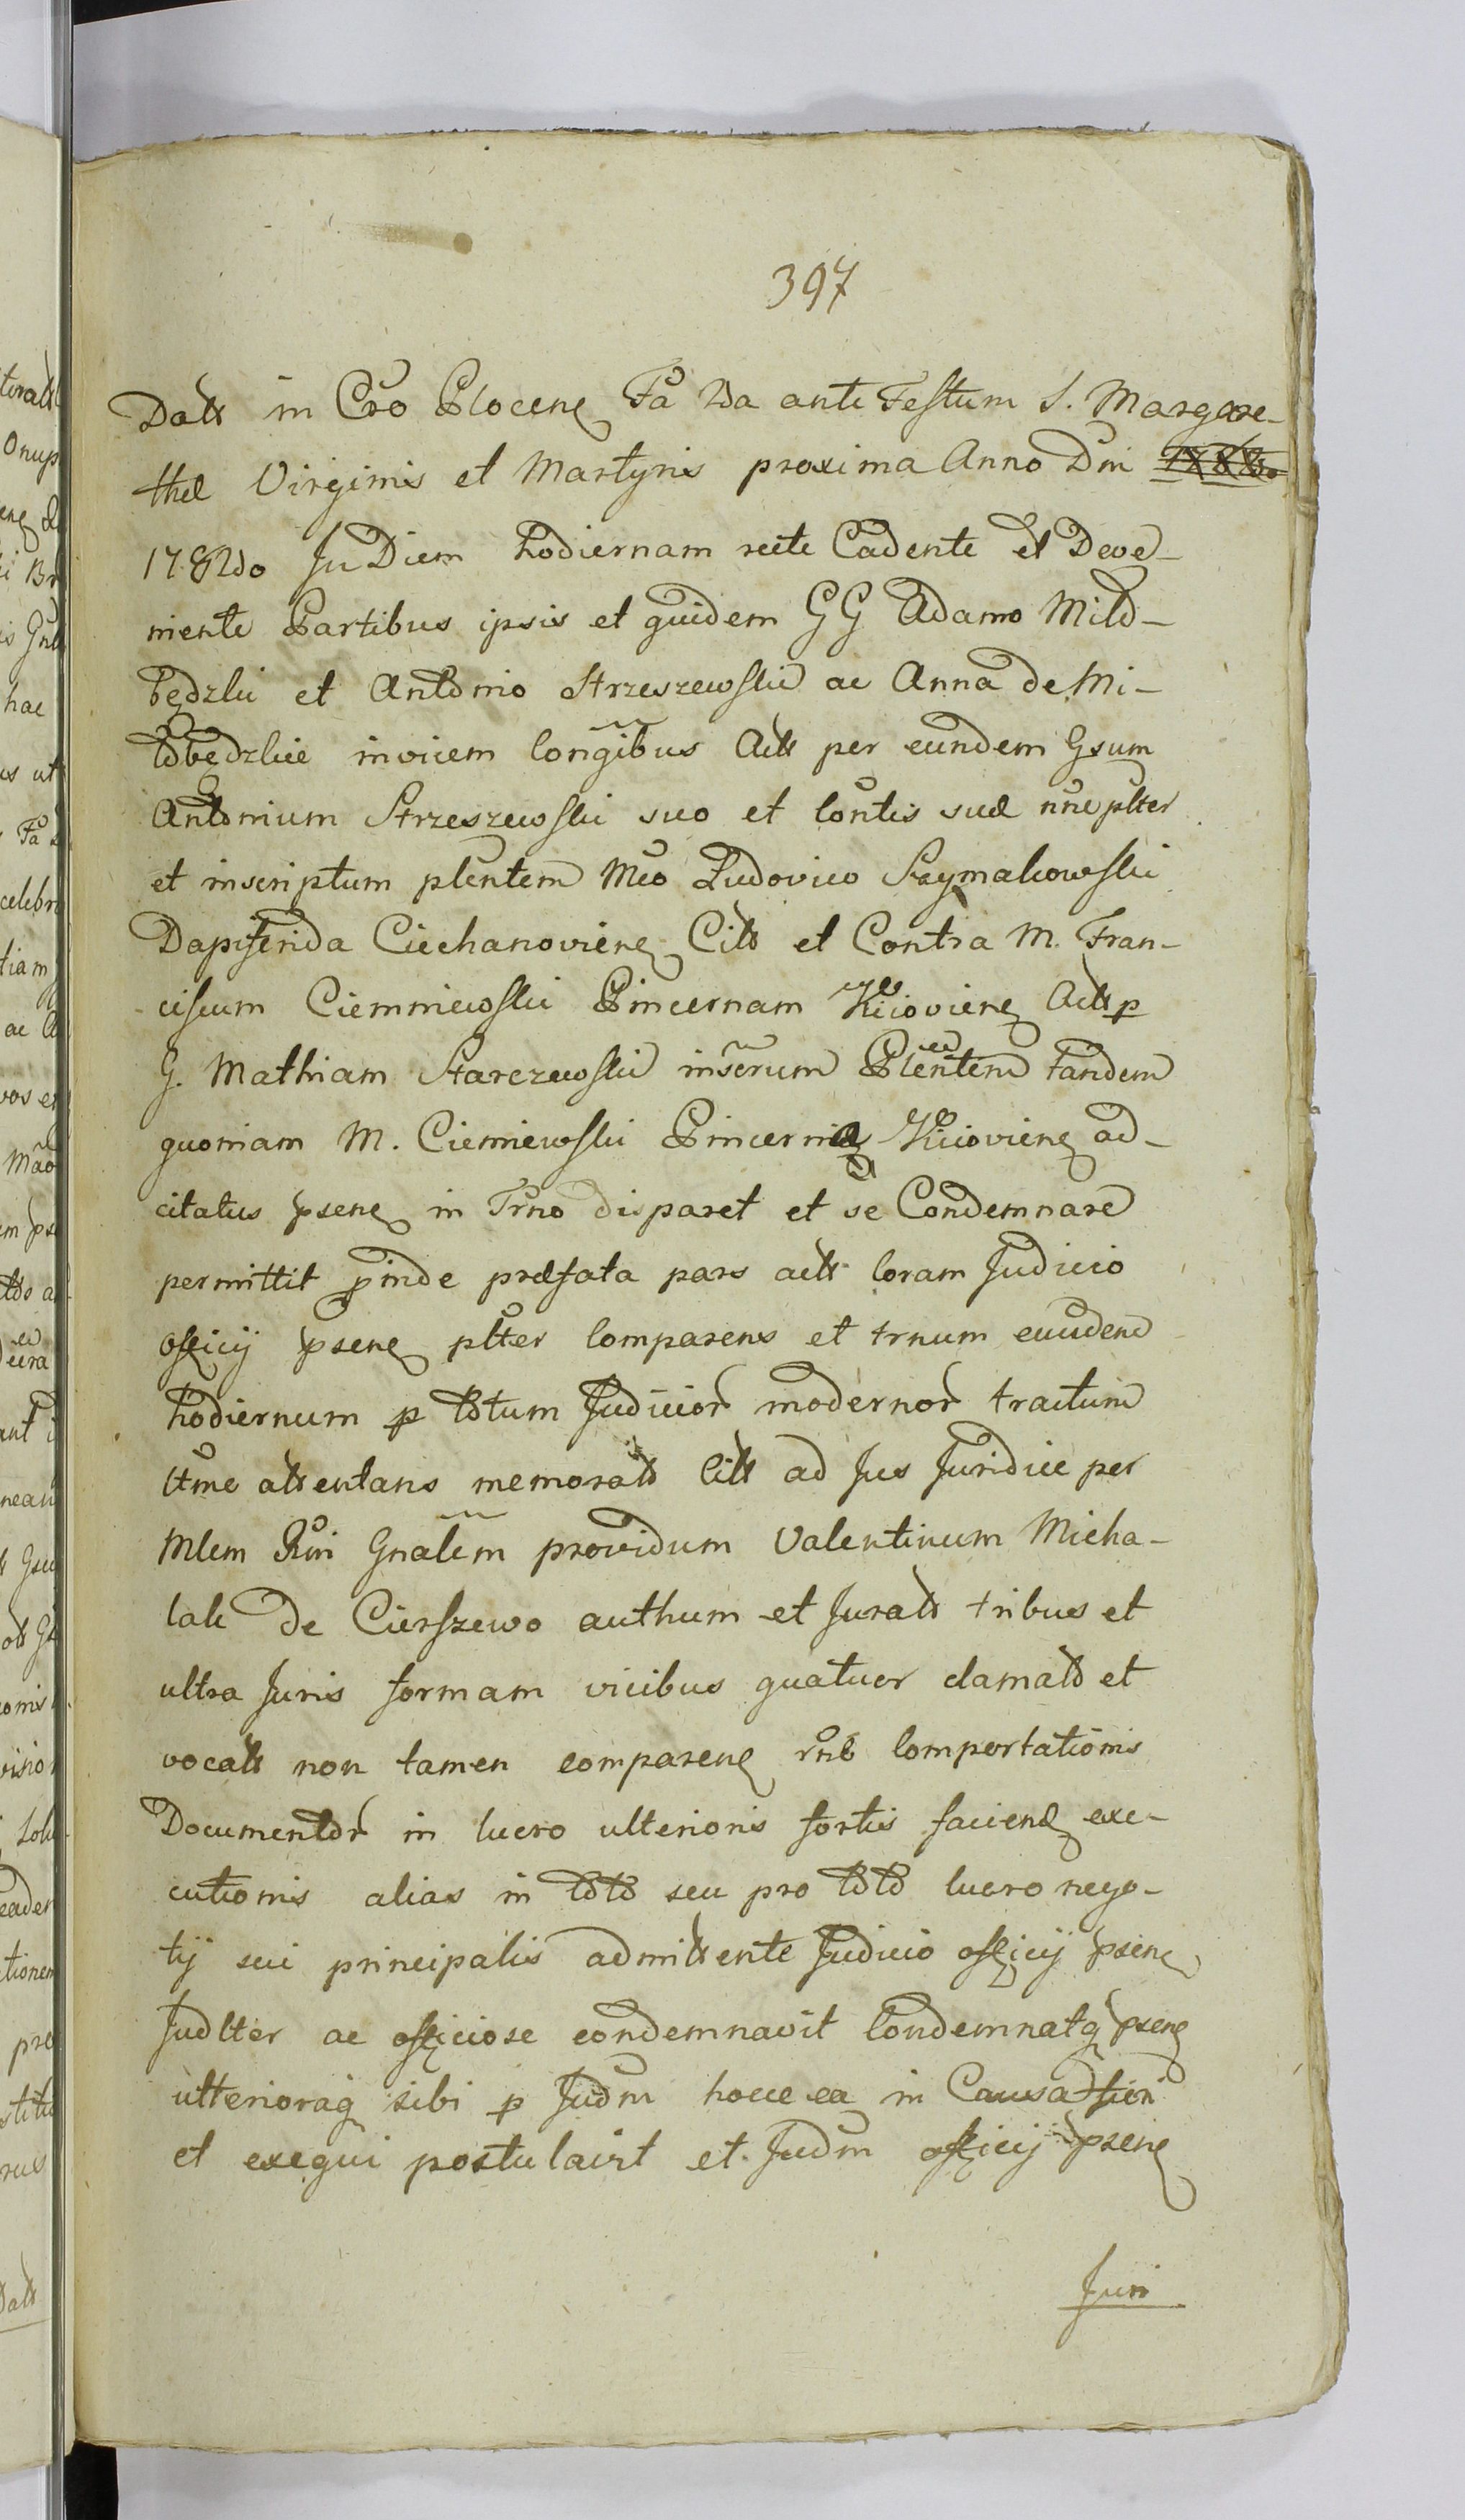 397
Datt in Cro Plocen Fa 2da ante Festum S. Margare-
thæ Virginis et Martyris proxima Anno Dni
1782do In Diem hodiernam recte Cadente et Deve-
niente Partibus ipsis et quidem GG Adamo Mild-
będzki et Antonio Strzeszewski ac Anna de Mi-
łobędzkie invicem Conigibus Actt per eundem Gsum
Antonium Strzeszewski suo et Contis suæ nne plter
et inscriptum plentem Mco Ludovico Szymakowski
Dapiferida Ciechanovien Citt et Contra M. Fran-
ciscum Ciemniewski Pincernam Kiiovien Actt p
G. Mathiam Starczewski inserum Plentem tandem
quoniam M. Ciemiewski Pincerna Kiiovien ad-
citatus psens in Trno disparet et se Condemnare
permittit pinde præfata pars actt Coram Judicio
officij psens plter Comparens et trnum eiusdem
hodiernum p totum Judicior modernor tractum
ltme attentans memoratt Citt ad Jus Juridice per
Mlem Rni Gnalem providum Valentinum Micha-
lak de Cierszewo authum et Juratt tribus et
ultra Juris formam vicibus quatuor clamatt et
vocatt non tamen comparen rnê Comportationis
Documentor in lucro ulterioris fortis faciend exe-
cutionis alias in toto seu pro toto lucro nego-
tij sui principalis admittente Judicio officij psens
Judlter ac officiose condemnavit Condemnatq psens
ulterioraq sibi p Judm hocce ea in Causa fieri
et exequi postulavit et Judm officij psens
Juri